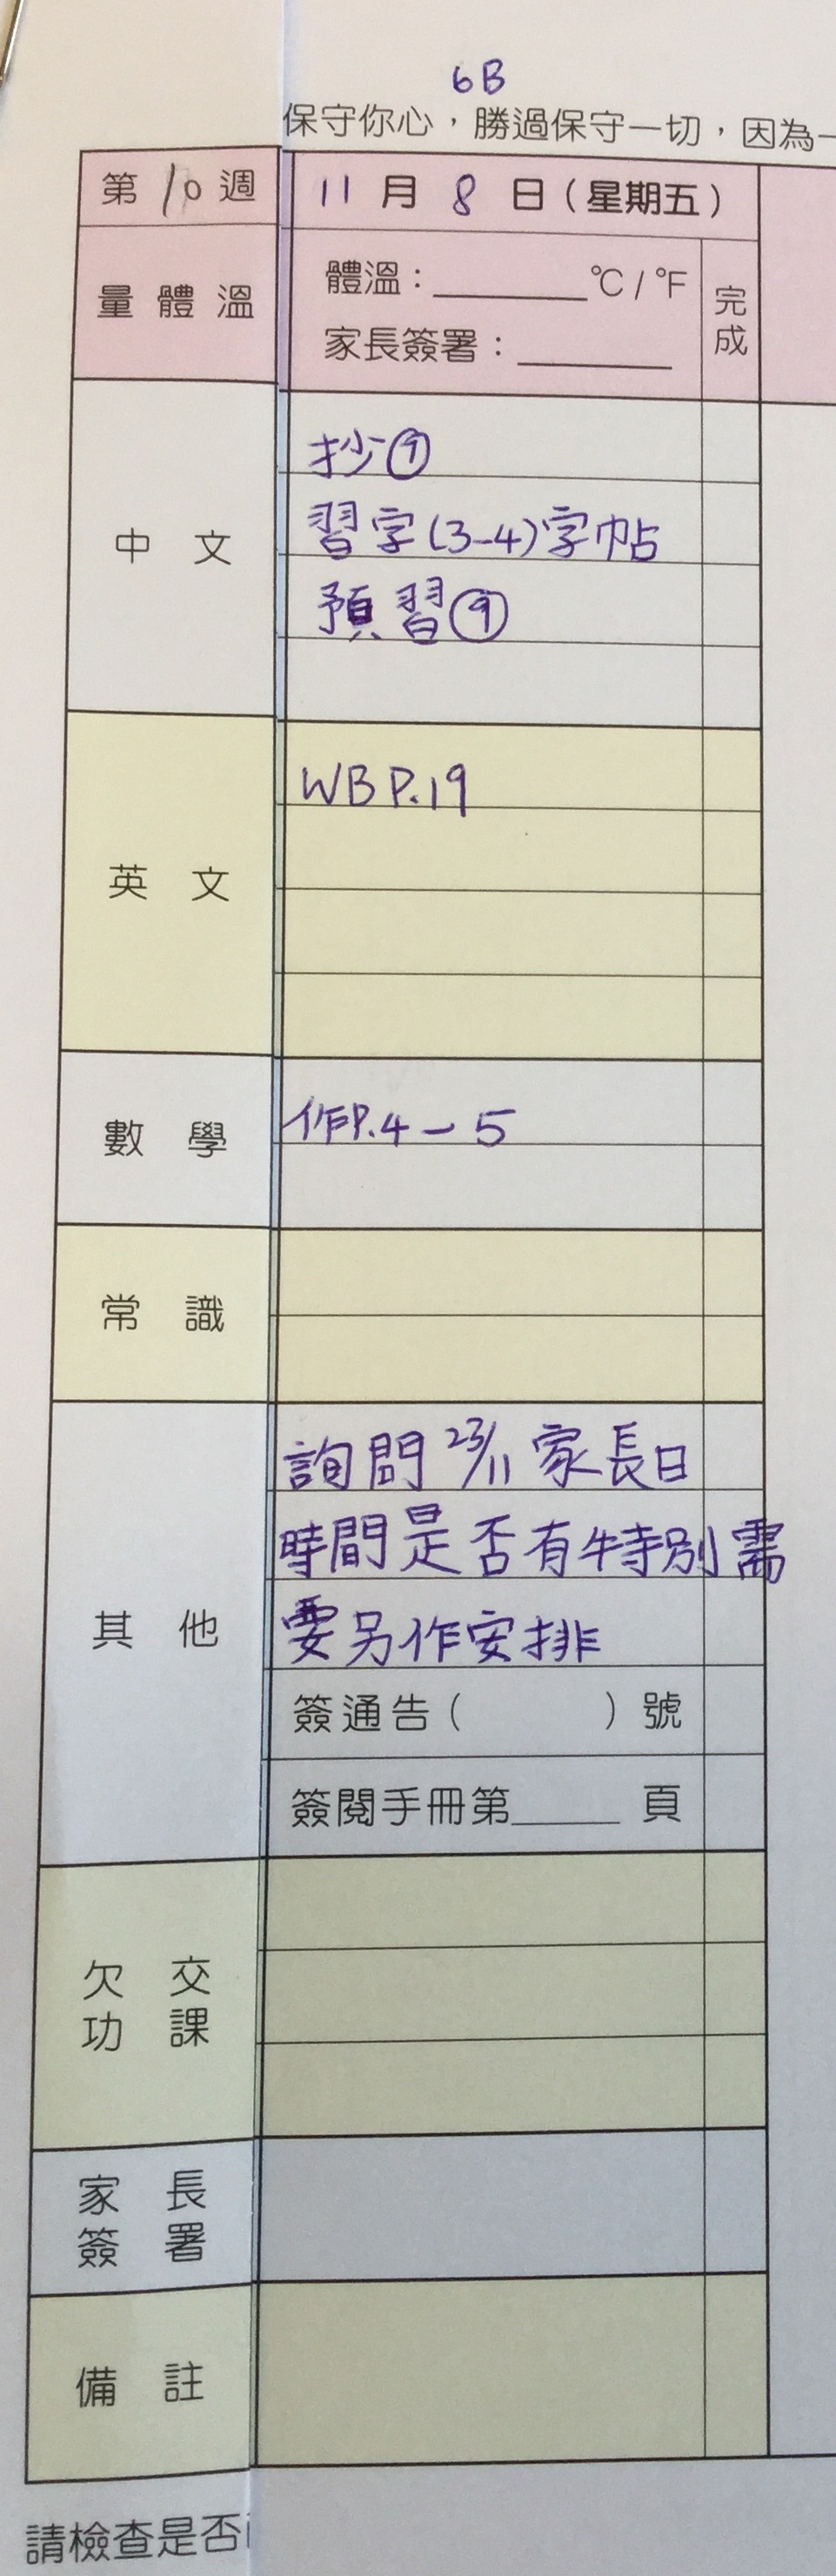 6B
保守你心，勝過保守一切，因為一
第10週 11月8日（星期五）
量體溫 體溫：______°C / °F 完成
家長簽署：______
中文 抄⑨
習字(3-4)字帖
預習⑨
英文 WB P.19
數學 作P.4-5
常識
其他 詢問23/11家長日
時間是否有特別需
要另作安排
簽通告（ ）號
簽閱手冊第____頁
欠交
功課
家長
簽署
備註
請檢查是否